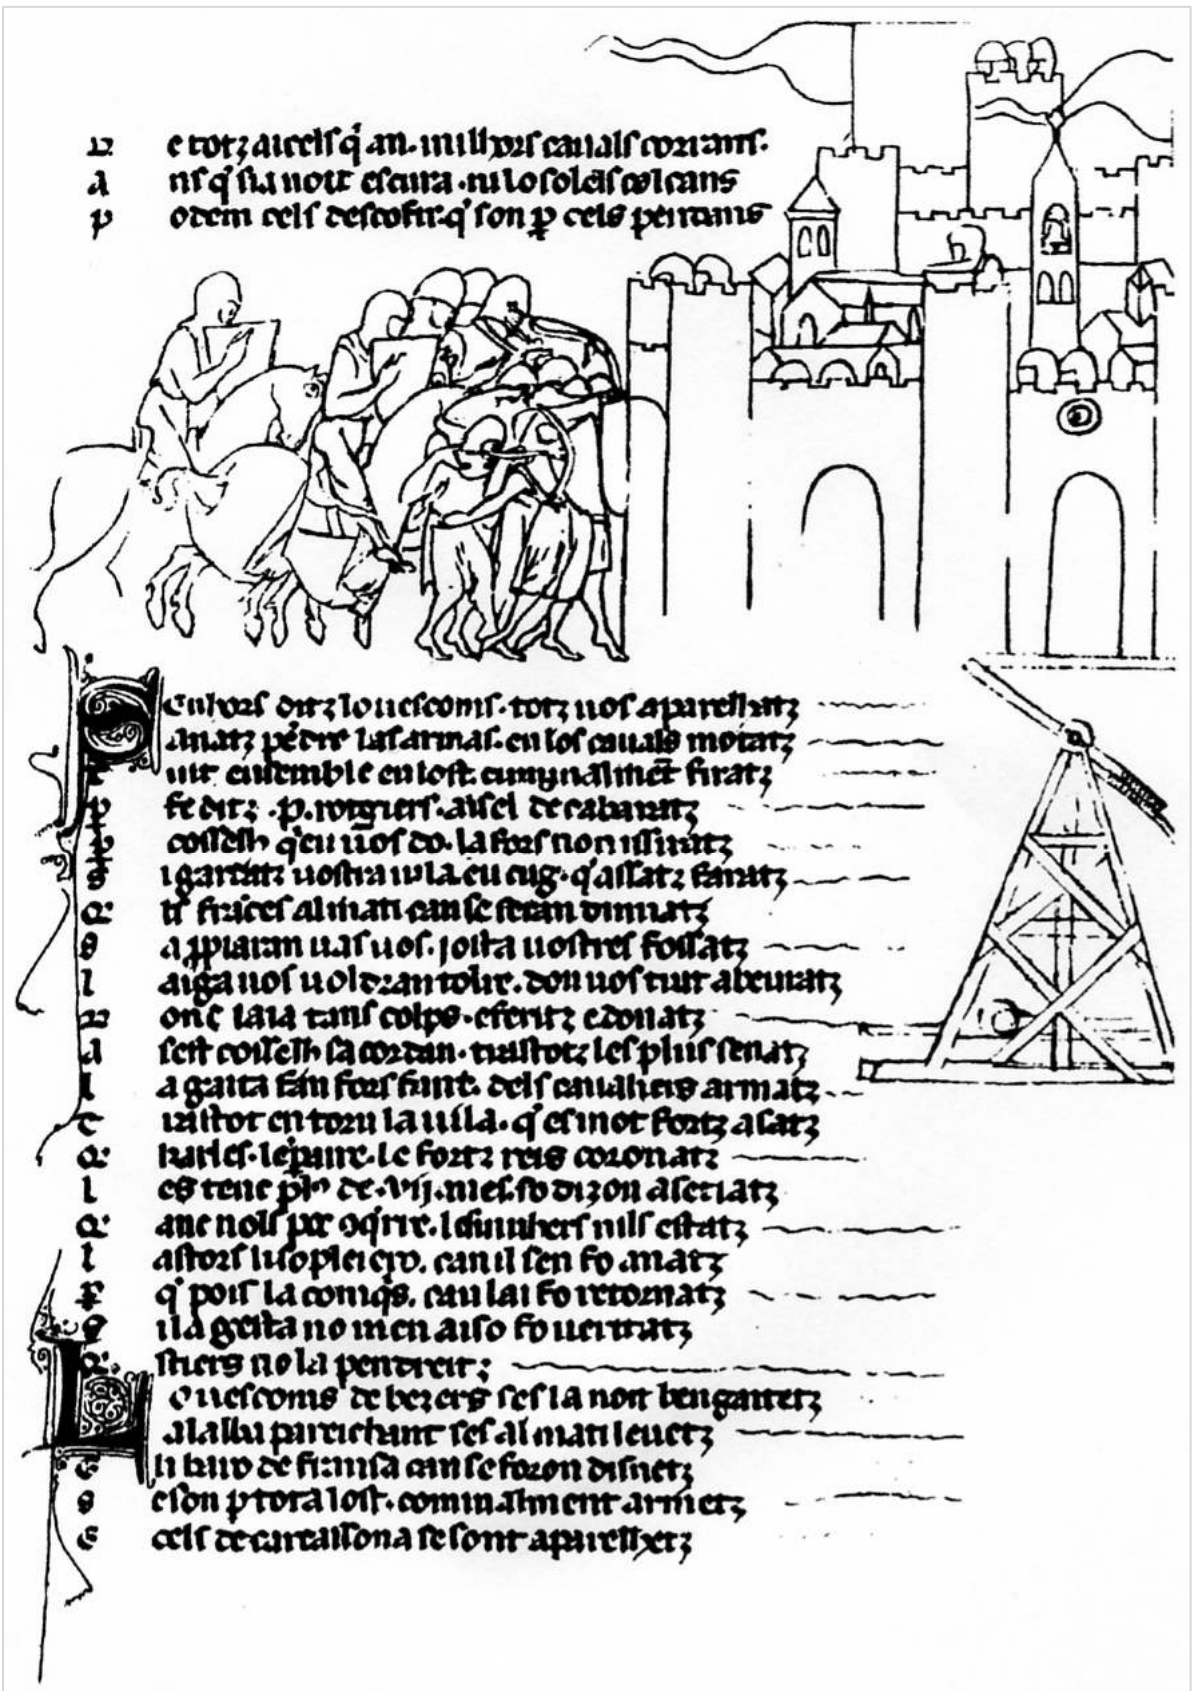 E totz aicels q̓ an. millors cauals corrans.
A ns q̓ sia noit escura. ni lo soleis colcans
P odem cels descofir. q̓ son ꝑ cels pendans
S enhors ditz lo uescoms. totz uos aparelhatz
anatz pēdre las armas. en los cauals mōtatz
T uit ensemble en lost. cuminalmēt firatz
P fe ditz .p. rotgiers. aisel de cabaratz
P cosselh q̓eu uos do. la fors non issiratz
S i gardatz uostra uila. eu cug. q̓ assatz faratz
Q̓ li frāces al mati can se seran dirnatz
S apropiaran uas uos. josta uostres fossatz
L aiga uos uoldran tolre. don uos tuit abeuratz
D onc laia tans colps. e feritz e donatz
A sest cosselh sa cordan. trastotz les plus senatz
L a gaita fan fors faire. dels caualiers armatz
T rastot en torn la uila. q̓ es mot fortz asatz
Q̓ karles. lēpaire. le fortz reis coronatz
L es tenc ꝑlꝰ de .vij. mes. so dizon asetiatz
Q̓ anc nols poc ꝯq̓rre. les iuuherns nils estatz
L as tors li sopleiero. can il sen fo anatz
P q̓ pois la comq̓s. can lai fo retornatz
S i la gesta no men aiso fo uertatz
Q̓ stiers no la pendreit;
L e uescoms de bezers ses la noit ben gaitetz
a lalba pareichant ses al mati leuetz
E li baro de fransa can se foron disnetz
S e son ꝑ tota lost. cominalment armetz
E cels de carcassona se sont aparelhetz